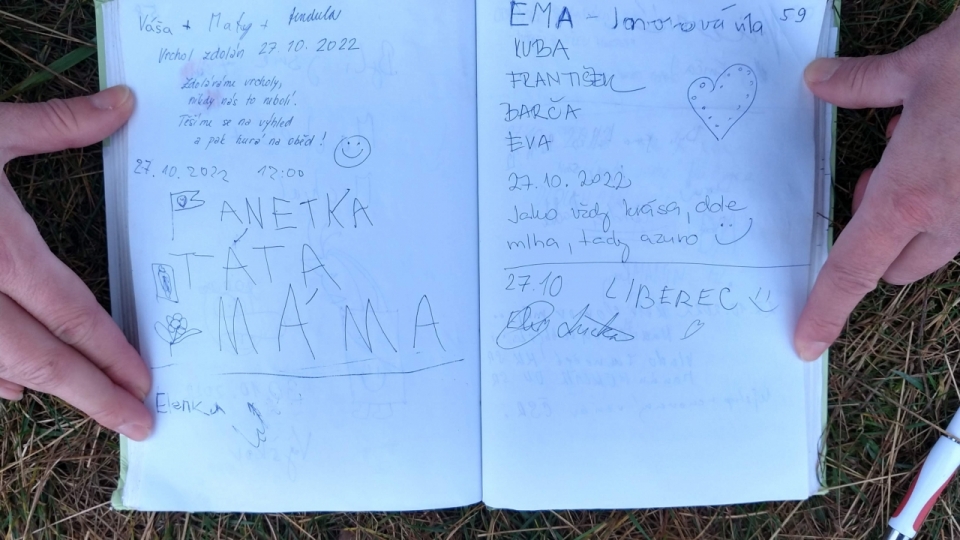 Váša + Maky + Jendula
Vrchol zdolán 27.10.2022
Zdoláváme vrcholy,
nikdy nás to nebolí.
Těšíme se na výhled
a pak hurá na oběd!
27.10.2022 12:00
ANETKA
TÁTA
MÁMA
Elenka
59
EMA - Javorová víla
KUBA
FRANTIŠEK
BARČA
EVA
27.10.2022
Jako vždy krása, dole
mlha, tady azuro
27.10 LIBEREC